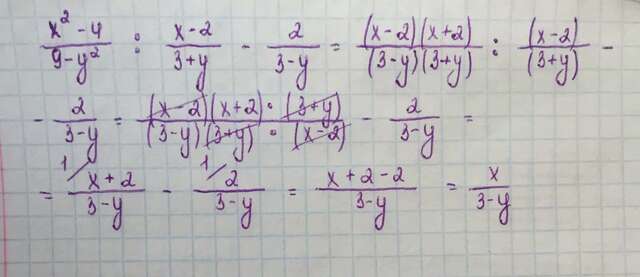 (x² - 4)/(9 - y²) : (x - 2)/(3 + y) - 2/(3 - y) = ((x - 2)(x + 2))/((3 - y)(3 + y)) : (x - 2)/(3 + y) -
- 2/(3 - y) = ((x - 2)(x + 2) · (3 + y))/((3 - y)(3 + y) · (x - 2)) - 2/(3 - y) =
= ¹/ (x + 2)/(3 - y) - ¹/ 2/(3 - y) = (x + 2 - 2)/(3 - y) = x/(3 - y)